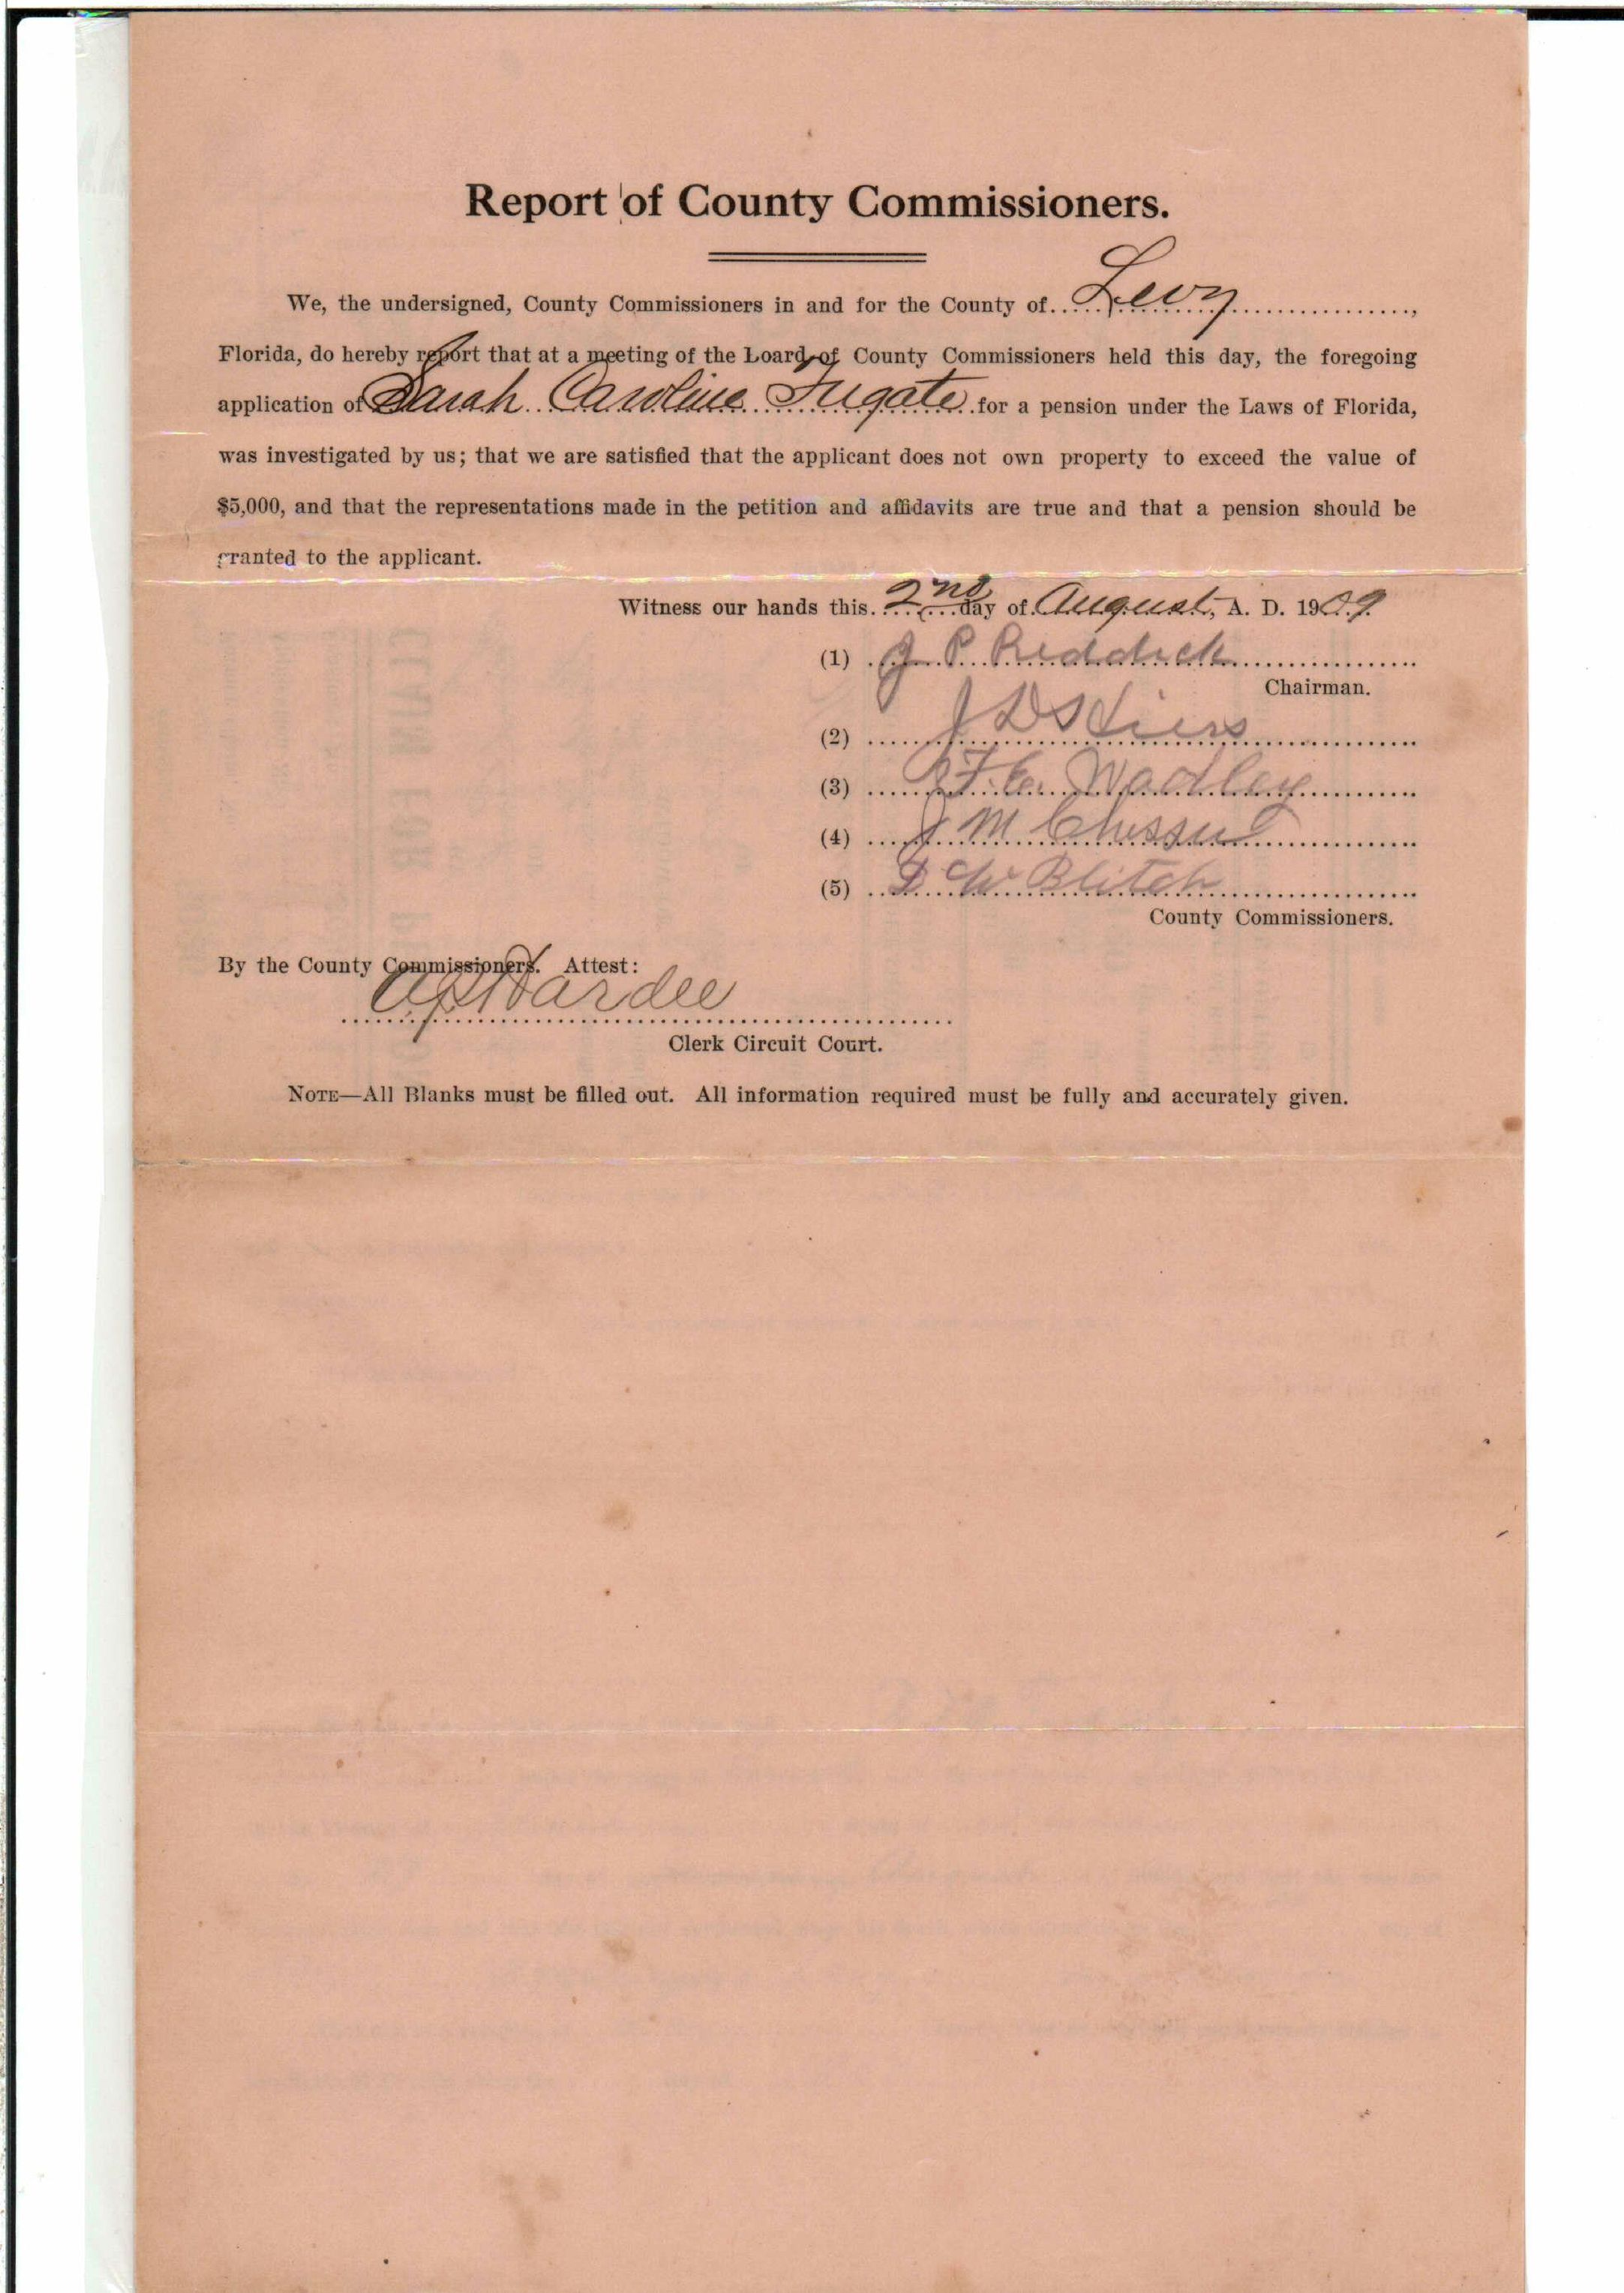 Report of County Commissioners.
We, the undersigned, County Commissioners in and for the County of Levy,
Florida, do hereby report that at a meeting of the Loard of County Commissioners held this day, the foregoing
application of Sarah Caroline Fugate for a pension under the Laws of Florida,
was investigated by us; that we are satisfied that the applicant does not own property to exceed the value of
$5,000, and that the representations made in the petition and affidavits are true and that a pension should be
granted to the applicant.
Witness our hands this 2nd day of August, A. D. 1909
(1) J P Reddick
Chairman.
(2) J D S Hiers
(3) Wadley
(4) J M
(5) D W Blitch
County Commissioners.
By the County Commissioners. Attest:
Hardee
Clerk Circuit Court.
NOTE—All Blanks must be filled out. All information required must be fully and accurately given.